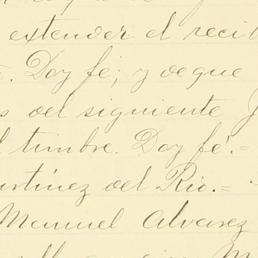 extender el recib
Doy fé; y de que
s del siguiente
l timbre. Doy fé.=
artínez del Rio.=
Manuel Alvarez